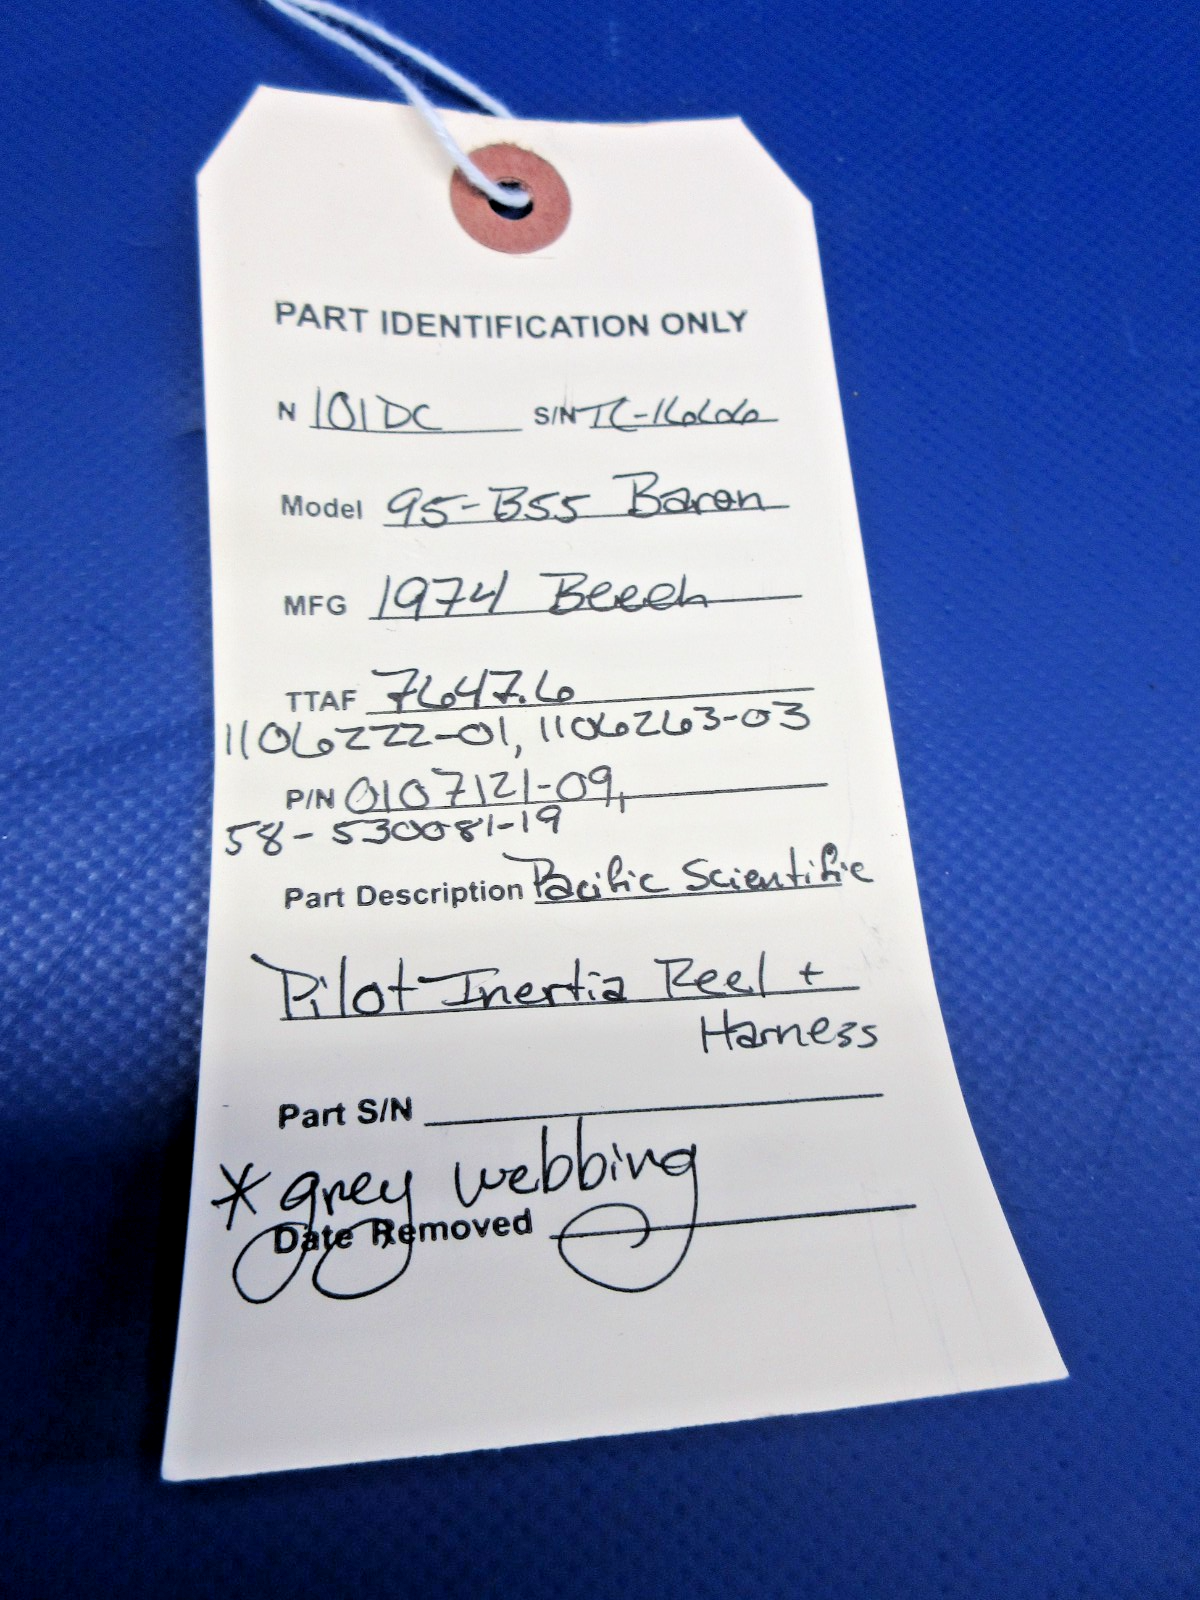 PART IDENTIFICATION ONLY
N 101DC S/N TC-1666
Model 95-B55 Baron
MFG 1974 Beech
TTAF 7647.6
1106222-01, 1106263-03
P/N 0107121-09,
58-530081-19
Part Description Pacific Scientific
Pilot Inertia Reel +
Harness
Part S/N
* grey webbing
Date Removed